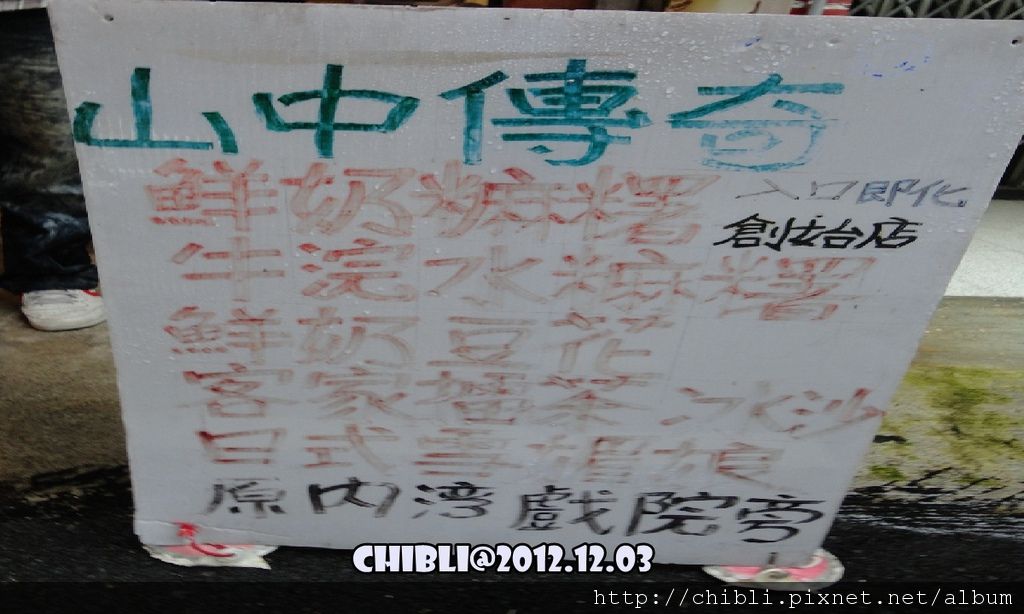 山中傳奇
鮮奶糍糬
入口即化
創始店
牛浣水糍糬
鮮奶豆花
客家擂茶冰沙
日式雪媚娘
原內湾戲院旁
CHIBLI@2012.12.03
http://chibli.pixnet.net/album